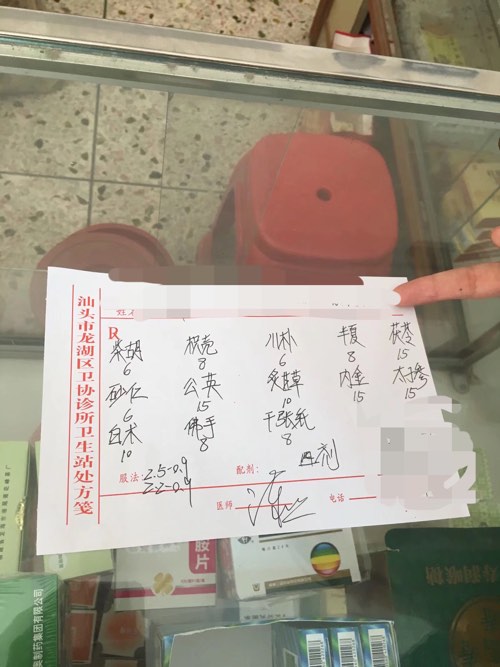 汕头市龙湖区卫协诊所卫生站处方笺
姓名
R
柴胡 枳壳 川朴 半夏 茯苓
6 8 6 8 15
砂仁 公英 炙甘草 内金 太子参
6 15 10 15 15
白术 佛手 千张纸
10 8 8
四剂
服法: 2.5-0.9 配剂:
2.2-0.9
医师 电话
胺片
润喉糖
药集团有限公司